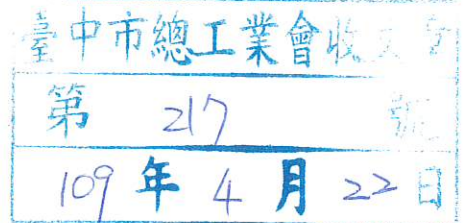 臺中市總工業會收文章
第 217 號
109 年 4 月 22 日